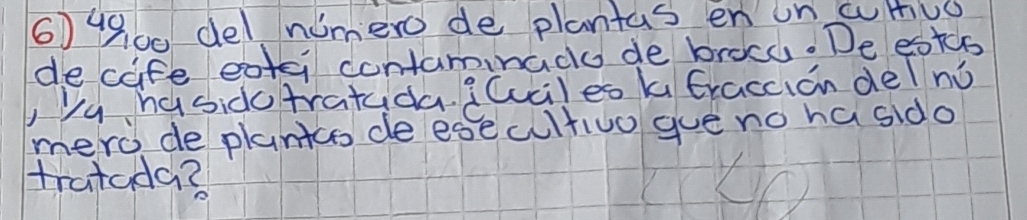 6) 49/100 del número de plantas en un cultivo
de cáfe está contaminado de broca. De estas
, 1/4 ha sido tratada. ¿Cuál es la fracción del nú
mero de plantas de ese cultivo que no ha sido
tratada?